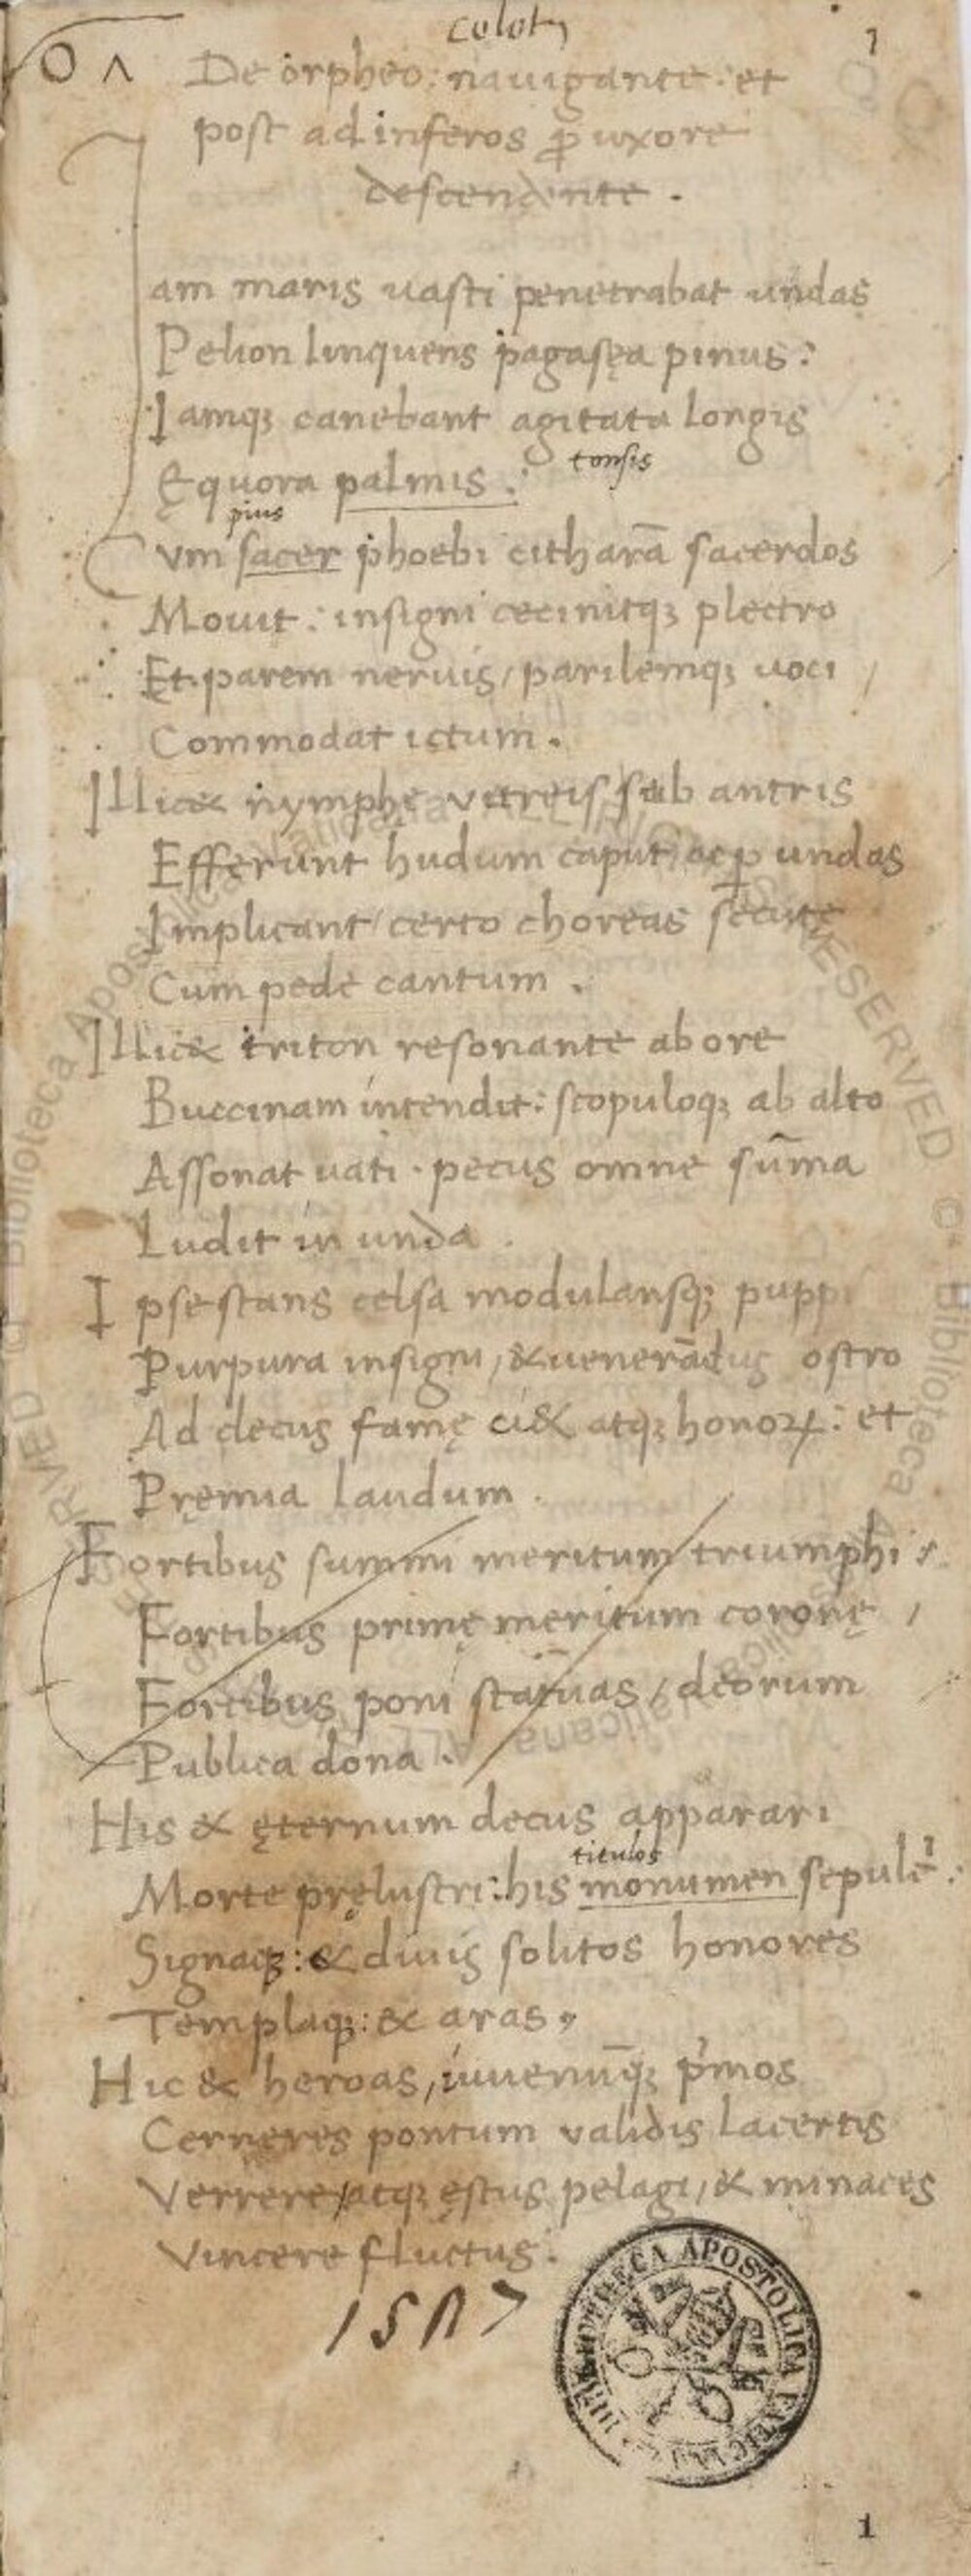 Coloty
O Λ
1
De orpheo: nauigante: et
post ad inferos ꝑ uxore
descendente.
am maris uasti penetrabat undas
Pelion linquens pagasęa pinus:
Iamqꝫ canebant agitata longis
tonsis
Ęquora palmis:
pius
Cum sacer phoebi citharā sacerdos
Mouit: insigni cecinitqꝫ plectro
Et parem neruis, parilemqꝫ uoci /
Commodat ictum.
Illic & nymphę vitreis sub antris
Efferunt hudum caput, ac ꝑ undas
Implicant / certo choreas secutę
Cum pede cantum.
Illic & triton resonante ab ore
Buccinam intendit: scopuloqꝫ ab alto
Assonat uati. pecus omne sūma
Ludit in unda.
Ipse stans celsa modulansqꝫ puppi
Purpura insigni, & uenerādus ostro
Ad decus famę ciꝫ & atqꝫ honoꝝ: et
Pręmia laudum.
Fortibus summi meritum triumphi:
Fortibus primę meritum coronę,
Fortibus poni statuas, deorum
Publica dona.
His & ęternum decus apparari
titulos
Morte pręlustri: his monumen sepulcͥ:
Signaqꝫ: & diuis solitos honores
Templaqꝫ: & aras,
Hic & heroas, iuuenūqꝫ pͥmos
Cerneres pontum validis lacertis
Verrere, atqꝫ ęstus pelagi, & minaces
Vincere fluctus:
BIBLIOTHECA APOSTOLICA VATICANA
1